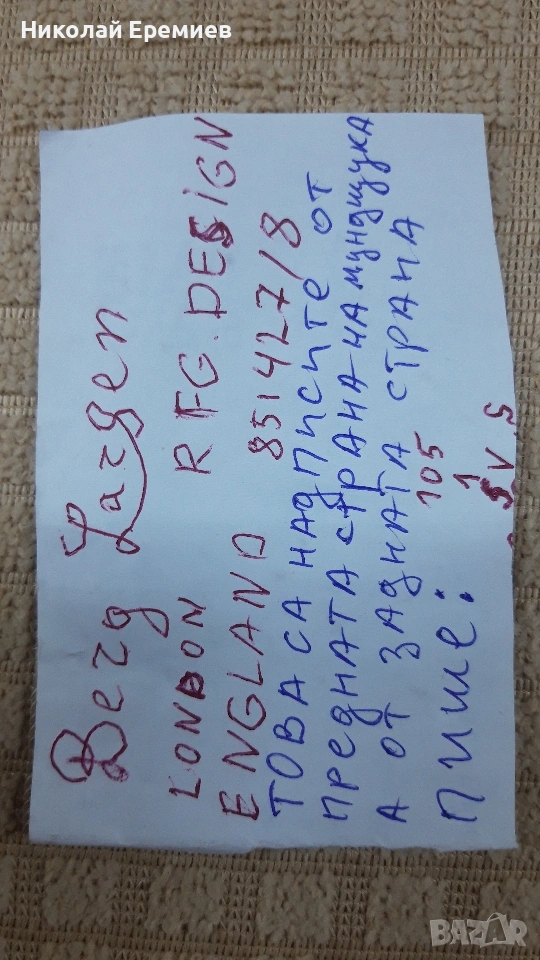 Николай Еремиев
Berg Largen
LONDON RFG. DESIGN
ENGLAND 851427/8
ТОВА СА НАДПИСИТЕ ОТ
ПРЕДНАТА СТРАНА НА МУНДЩУКА
А ОТ ЗАДНАТА СТРАНА
ПИШЕ: 105
1
SVS
BAZAR